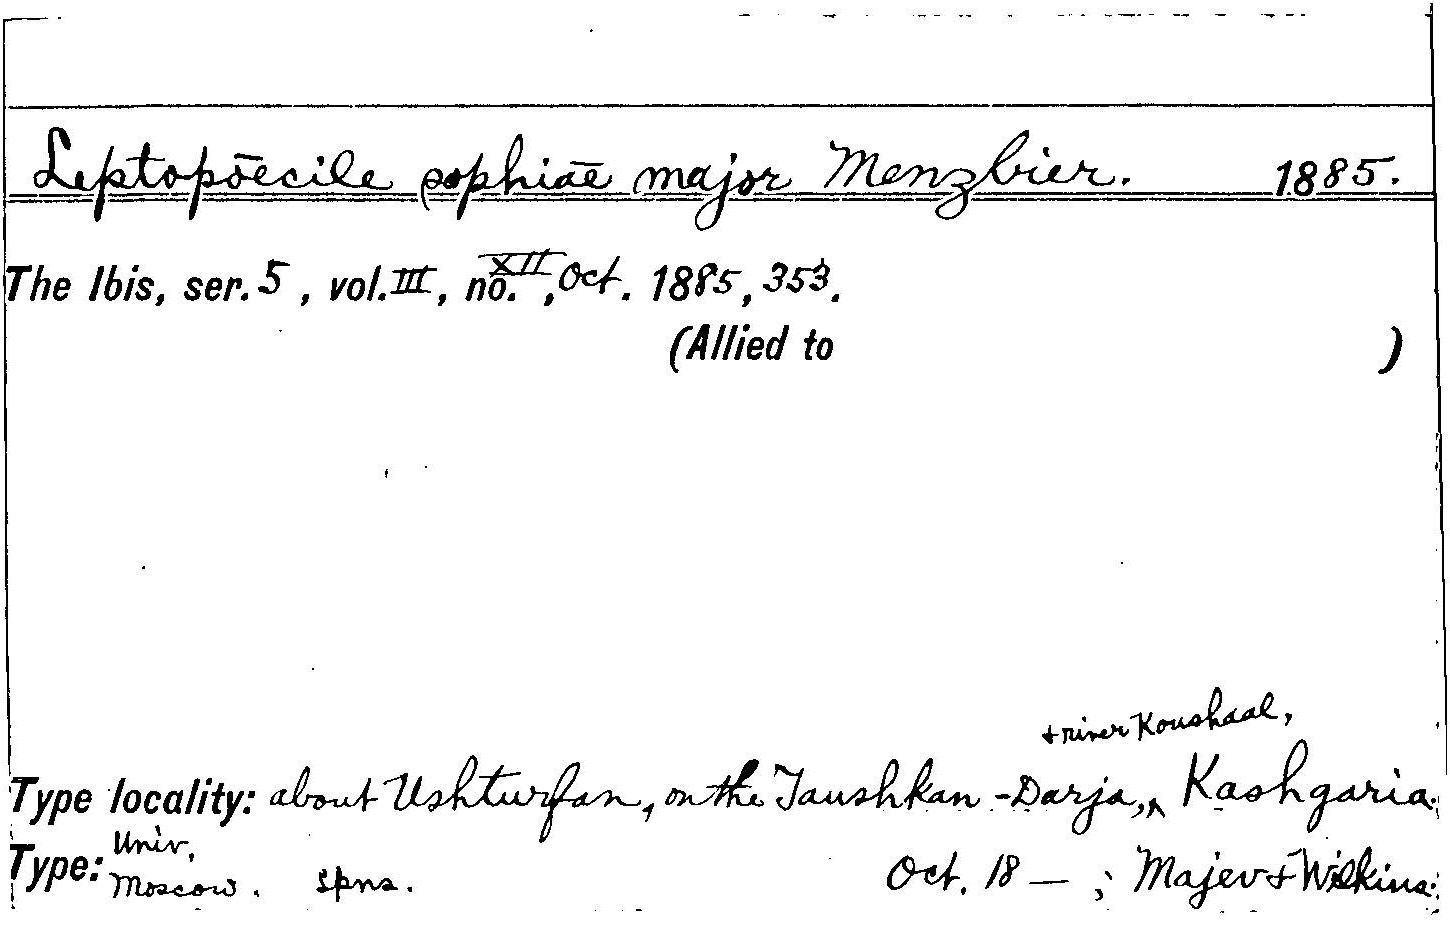 Leptopōecile sophiāe major Menzbier. 1885.
The Ibis, ser. 5, vol. III, no. XII, Oct. 1885, 353.
(Allied to )
& river Koushaal,
Type locality: about Ushturfan, on the Taushkan-Darja, ^ Kashgaria.
Univ.
Type: Moscow. spns. Oct. 18 — ; Majev & Wilkins.